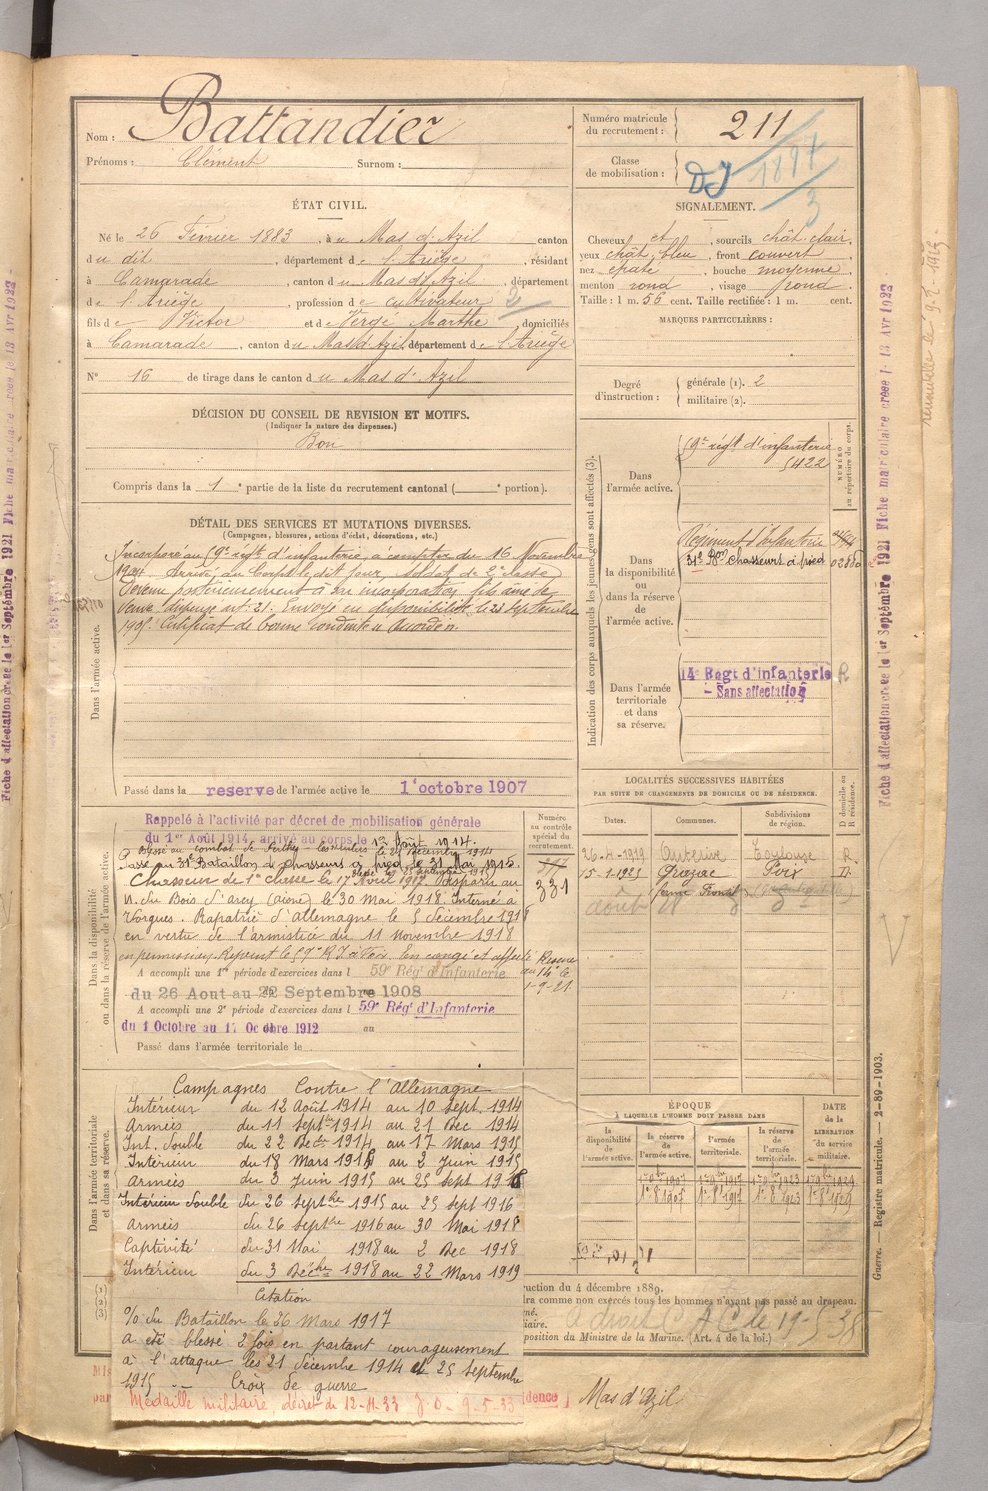 Nom : Battandier
Prénoms : Clément Surnom :
Numéro matricule du recrutement : 211
Classe de mobilisation : 1897/3
ÉTAT CIVIL.
Né le 26 Février 1883, à u Mas d'Azil canton
du dit, département de l'Ariège, résidant
à Camarade, canton du Mas d'Azil, département
de l'Ariège, profession de cultivateur 2
fils de Victor et de Vergé Marthe, domiciliés
à Camarade, canton du Mas d'Azil, département de l'Ariège
N° 16 de tirage dans le canton du Mas d'Azil
SIGNALEMENT.
Cheveux et, sourcils chât clair,
yeux chât. bleu, front couvert,
nez épaté, bouche moyenne,
menton rond, visage rond.
Taille : 1 m. 56 cent. Taille rectifiée : 1 m. cent.
MARQUES PARTICULIÈRES :
Degré d'instruction : générale (1). 2
militaire (2).
DÉCISION DU CONSEIL DE REVISION ET MOTIFS.
(Indiquer la nature des dispenses.)
Bon
Compris dans la 1e partie de la liste du recrutement cantonal ( e portion).
DÉTAIL DES SERVICES ET MUTATIONS DIVERSES.
(Campagnes, blessures, actions d'éclat, décorations, etc.)
Dans l'armée active.
Incorporé au 59e régt d'infanterie, à compter du 16 Novembre
1904. Arrivé au Corps le dit jour, soldat de 2e classe
Devenu postérieurement à son incorporation fils aîné de
veuve, dispensé art. 21. Envoyé en disponibilité le 23 septembre
1905. Certificat de bonne conduite accordé.
Passé dans la reserve de l'armée active le 1 octobre 1907
Indication des corps auxquels les jeunes gens sont affectés (3).
NUMÉRO au répertoire du corps.
Dans l'armée active.
59e régt d'infanterie
5422
Dans la disponibilité ou dans la réserve de l'armée active.
Régiment d'Infanterie
31e Bon Chasseurs à pied 02880
Dans l'armée territoriale et dans sa réserve.
14e Regt d'infanterie R
- Sans affectation
Dans la disponibilité ou dans la réserve de l'armée active.
Rappelé à l'activité par décret de mobilisation générale
du 1er Août 1914, arrivé au corps le 12 Août 1914.
Blessé au combat de Perthes-les-Hurlus le 21 décembre 1914
Passé au 31e Bataillon de Chasseurs à pied le 31 Mai 1915.
Blessé le 25 septembre 1915
Chasseur de 1e classe le 17 Avril 1917. Disparu au
N. du Bois d'arcy (aisne) le 30 Mai 1918. Interné à
Rapatrié d'allemagne le 5 décembre 1918
en vertu de l'armistice du 11 novembre 1918
en permission. Rejoint le 59e R.I. En congé et affecté
Numéro au contrôle spécial du recrutement.
297
331
Réserve
au 14e le
1-9-21.
A accompli une 1re période d'exercices dans l 59e Régt d'Infanterie
du 26 Aout au 22 Septembre 1908
A accompli une 2e période d'exercices dans l 59e Régt d'Infanterie
du 1 Octobre au 17 Octobre 1912 au
Passé dans l'armée territoriale le
LOCALITÉS SUCCESSIVES HABITÉES
PAR SUITE DE CHANGEMENTS DE DOMICILE OU DE RÉSIDENCE.
Dates. Communes. Subdivisions de région. D domicile ou R résidence.
26-4-1919 Auterive Toulouse R.
15-1-1923 Grazac Foix D.
Dans l'armée territoriale et dans sa réserve.
Campagnes Contre l'Allemagne
Intérieur du 12 Août 1914 au 10 Sept. 1914
Armées du 11 Septbre 1914 au 21 Dec 1914
Int. double du 22 Decbre 1914 au 17 Mars 1915
Intérieur du 18 Mars 1915 au 2 Juin 1915
Armées du 3 Juin 1915 au 25 Sept 1915
Intérieur double du 26 Septbre 1915 au 25 Sept 1916
Armées du 26 Septbre 1916 au 30 Mai 1918
Captivité du 31 Mai 1918 au 2 Dec 1918
Intérieur du 3 Décbre 1918 au 22 Mars 1919
Citation
O/ du Bataillon le 26 Mars 1917
a été blessé 2 fois en partant courageusement
à l'attaque les 21 décembre 1914 et 25 septembre
1915 -.- Croix de guerre
Médaille militaire, décret du 12-4-33 J.O. 9-5-33
ÉPOQUE
À LAQUELLE L'HOMME DOIT PASSER DANS
la disponibilité de l'armée active. la réserve de l'armée active. l'armée territoriale. la réserve de l'armée territoriale.
DATE de la LIBÉRATION du service militaire.
1er 8bre 1907 1er 8bre 1917 1er 8bre 1923 1er 8bre 1929
ruction du 4 décembre 1889.
dra comme non exercés tous les hommes n'ayant pas passé au drapeau.
né.
iaire.
position du Ministre de la Marine. (Art. 4 de la loi.)
a droit C A C le 19-5-38
idence
Mas d'Azil
Guerre. — Registre matricule. — 2-89-1903.
Fiche d'affectation créée le 1er Septembre 1921 Fiche matriculaire créée le 13 Avr 1922
Fiche d'affectation créée le 1er Septembre 1921 Fiche matriculaire créée le 13 Avr 1922